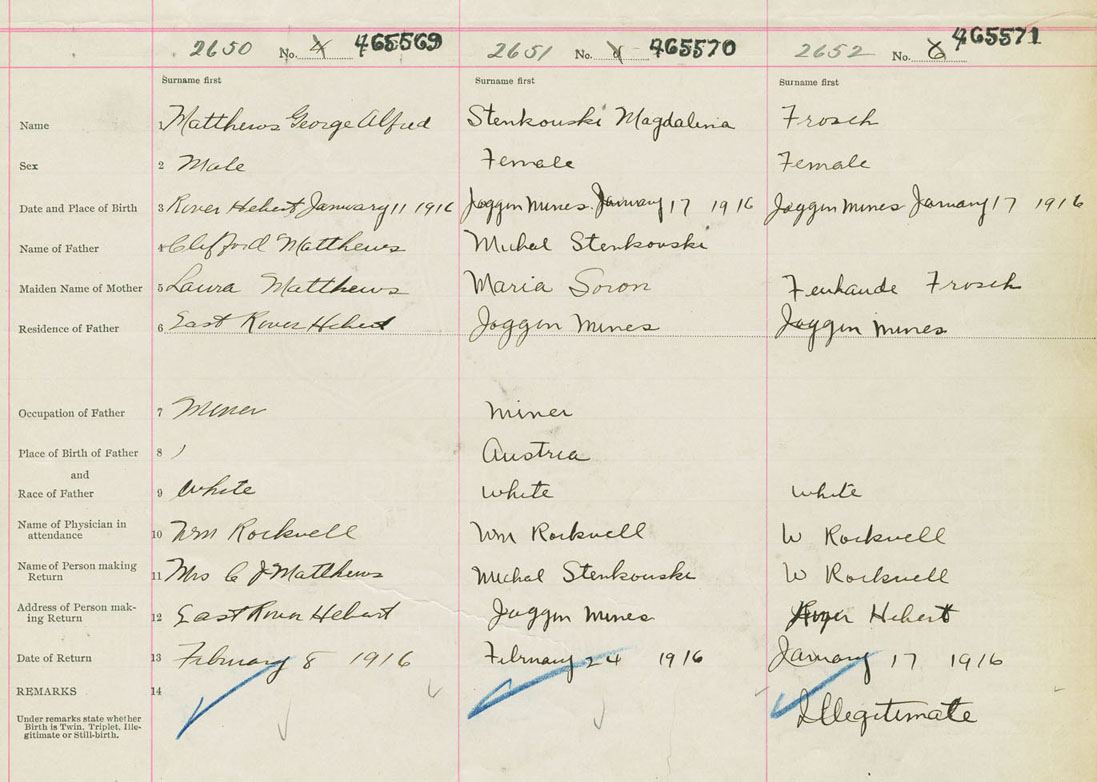 2650 No. 4 465569 2651 No. 4 465570 2652 No. 6 465571
Surname first Surname first Surname first
Name 1 Matthews George Alfred Stenkouski Magdalina Frosch
Sex 2 Male Female Female
Date and Place of Birth 3 River Hebert January 11 1916 Joggin Mines January 17 1916 Joggin Mines January 17 1916
Name of Father 4 Clifford Matthews Michal Stenkouski
Maiden Name of Mother 5 Laura Matthews Maria Soron Frosch
Residence of Father 6 East River Hebert Joggin Mines Joggin Mines
Occupation of Father 7 Miner Miner
Place of Birth of Father 8 Austria
and
Race of Father 9 White White White
Name of Physician in
attendance 10 Wm Rockwell Wm Rockwell W Rockwell
Name of Person making
Return 11 Mrs C J Matthews Michal Stenkouski W Rockwell
Address of Person mak-
ing Return 12 East River Hebert Joggin Mines River Hebert
Date of Return 13 February 8 1916 February 24 1916 January 17 1916
REMARKS 14 Illegitimate
Under remarks state whether
Birth is Twin, Triplet, Ille-
gitimate or Still-birth.